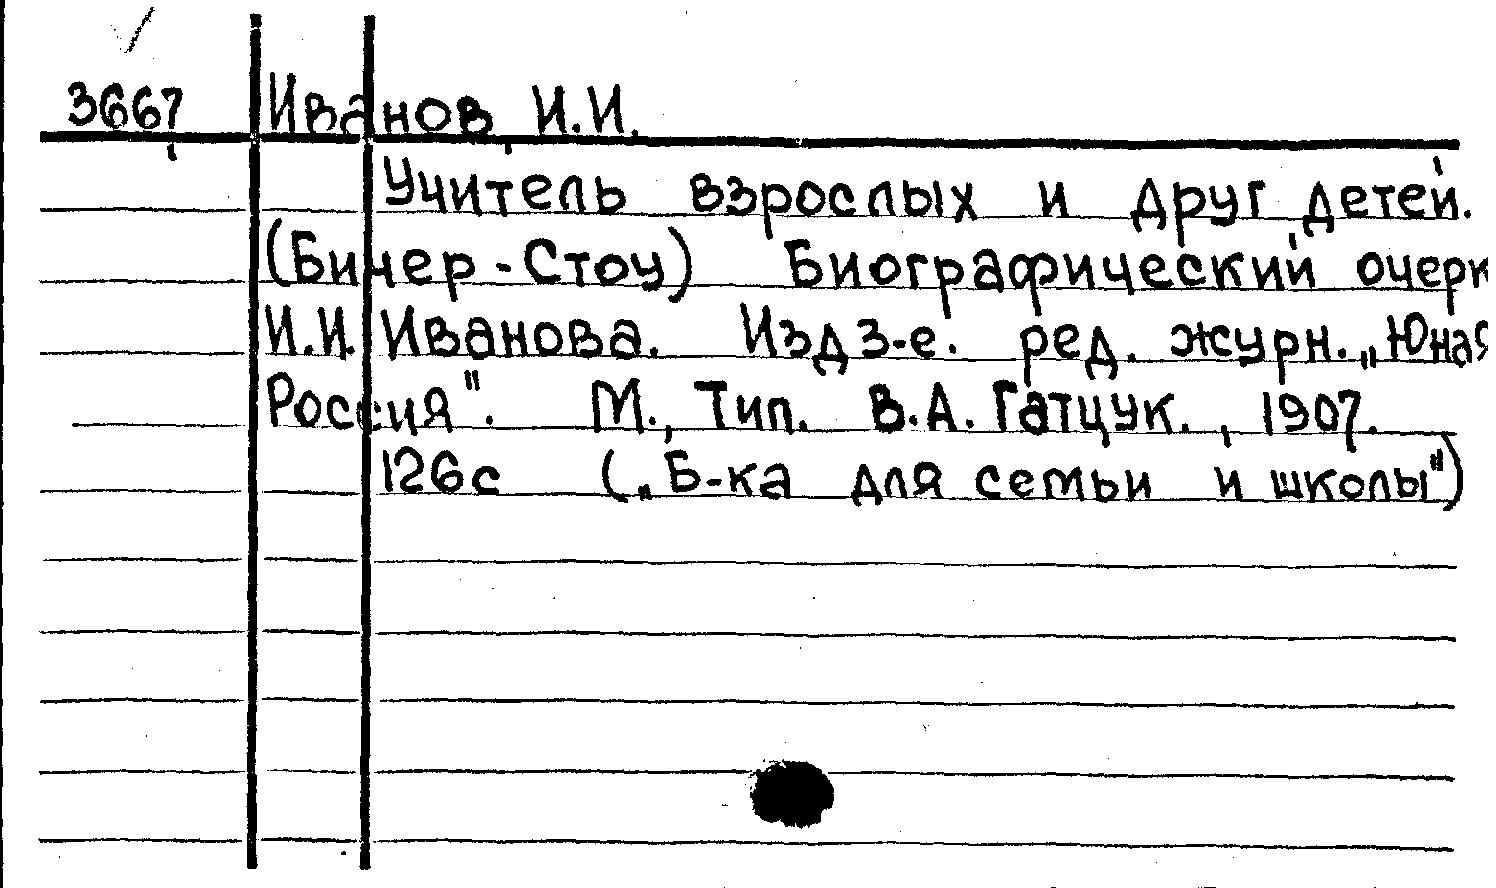 3667 Иванов, И.И.
Учитель взрослых и друг детей.
(Бичер-Стоу) Биографический очерк
И.И. Иванова. Изд 3-е. ред. журн. „Юная
Россия". М., Тип. В.А. Гатцук., 1907.
126с („Б-ка для семьи и школы")